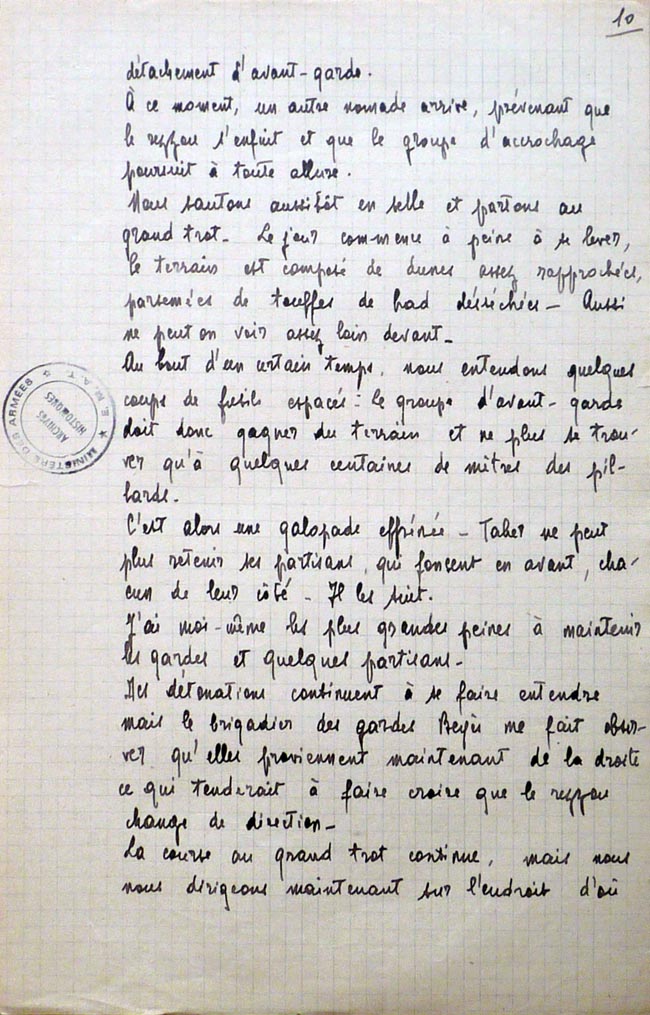 10
détachement d'avant-garde.
À ce moment, un autre nomade arrive, prévenant que
le rezzou s'enfuit et que le groupe d'accrochage
poursuit à toute allure.
Nous sautons aussitôt en selle et partons au
grand trot_ Le jour commence à peine à se lever,
le terrain est composé de dunes assez rapprochées,
parsemées de touffes de had désséchées_ Aussi
ne peut on voir assez loin devant_
Au bout d'un certain temps, nous entendons quelques
coups de fusils espacés : le groupe d'avant-garde
doit donc gagner du terrain et ne plus se trou-
ver qu'à quelques centaines de mètres des pil-
lards_
C'est alors une galopade effrénée_ Taher ne peut
plus retenir ses partisans, qui foncent en avant, cha-
cun de leur côté_ Il les suit.
J'ai moi-même les plus grandes peines à maintenir
les gardes et quelques partisans_
Des détonations continuent à se faire entendre
mais le brigadier des gardes me fait obser-
ver qu'elles proviennent maintenant de la droite
ce qui tenderait à faire croire que le rezzou
change de direction_
La course au grand trot continue, mais nous
nous dirigeons maintenant sur l'endroit d'où
MINISTERE DES ARMÉES
E.M.A.T.
ARCHIVES
HISTORIQUES